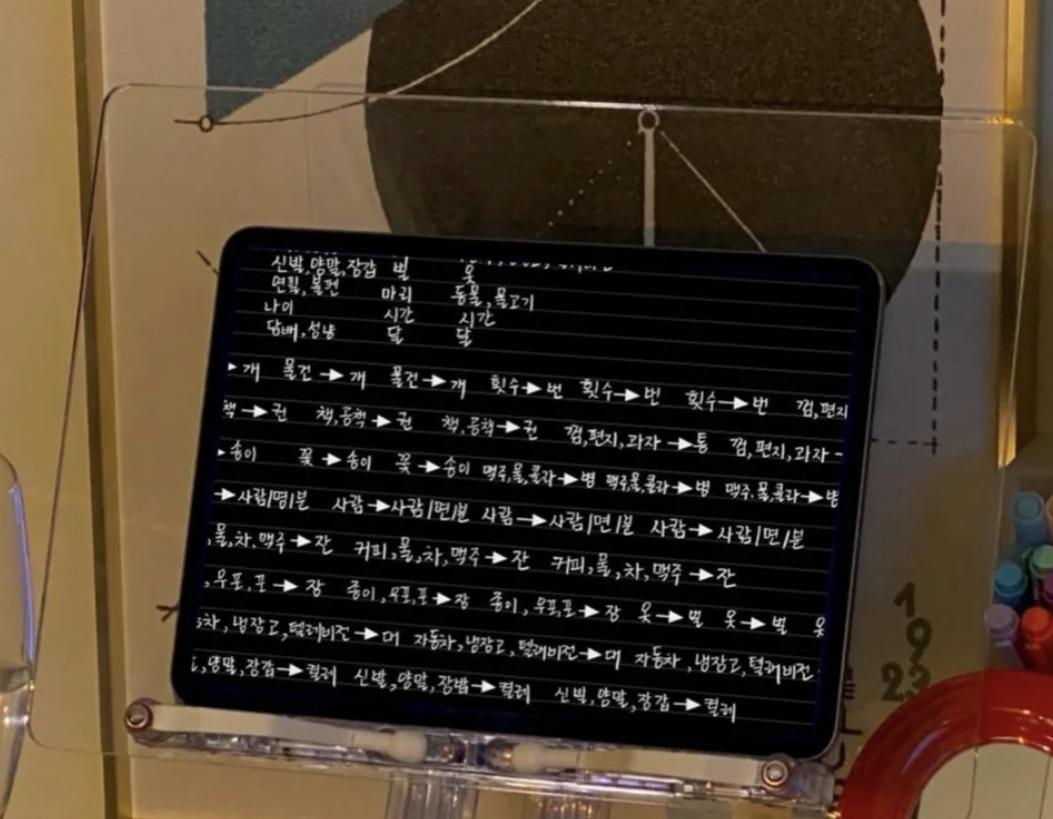 신발,양말,장갑 벌 옷
연필,볼펜 마리 동물,물고기
나이 시간 시간
담배,성냥 달 달
개 물건→개 물건→개 횟수→번 횟수→번 횟수→번 껌,편지
책→권 책,공책→권 책,공책→권 껌,편지,과자→통 껌,편지,과자
송이 꽃→송이 꽃→송이 맥주,물,콜라→병 맥주,물,콜라→병 맥주,물,콜라→병
→사람/명/분 사람→사람/면/분 사람→사람/면/분 사람→사람/면/분
,물,차,맥주→잔 커피,물,차,맥주→잔 커피,물,차,맥주→잔
,우표,표→장 종이,우표,표→장 종이,우표,표→장 옷→벌 옷→벌 옷
차,냉장고,텔레비전→대 자동차,냉장고,텔레비전→대 자동차,냉장고,텔레비전
,양말,장갑→켤레 신발,양말,장갑→켤레 신발,양말,장갑→켤레
19
23